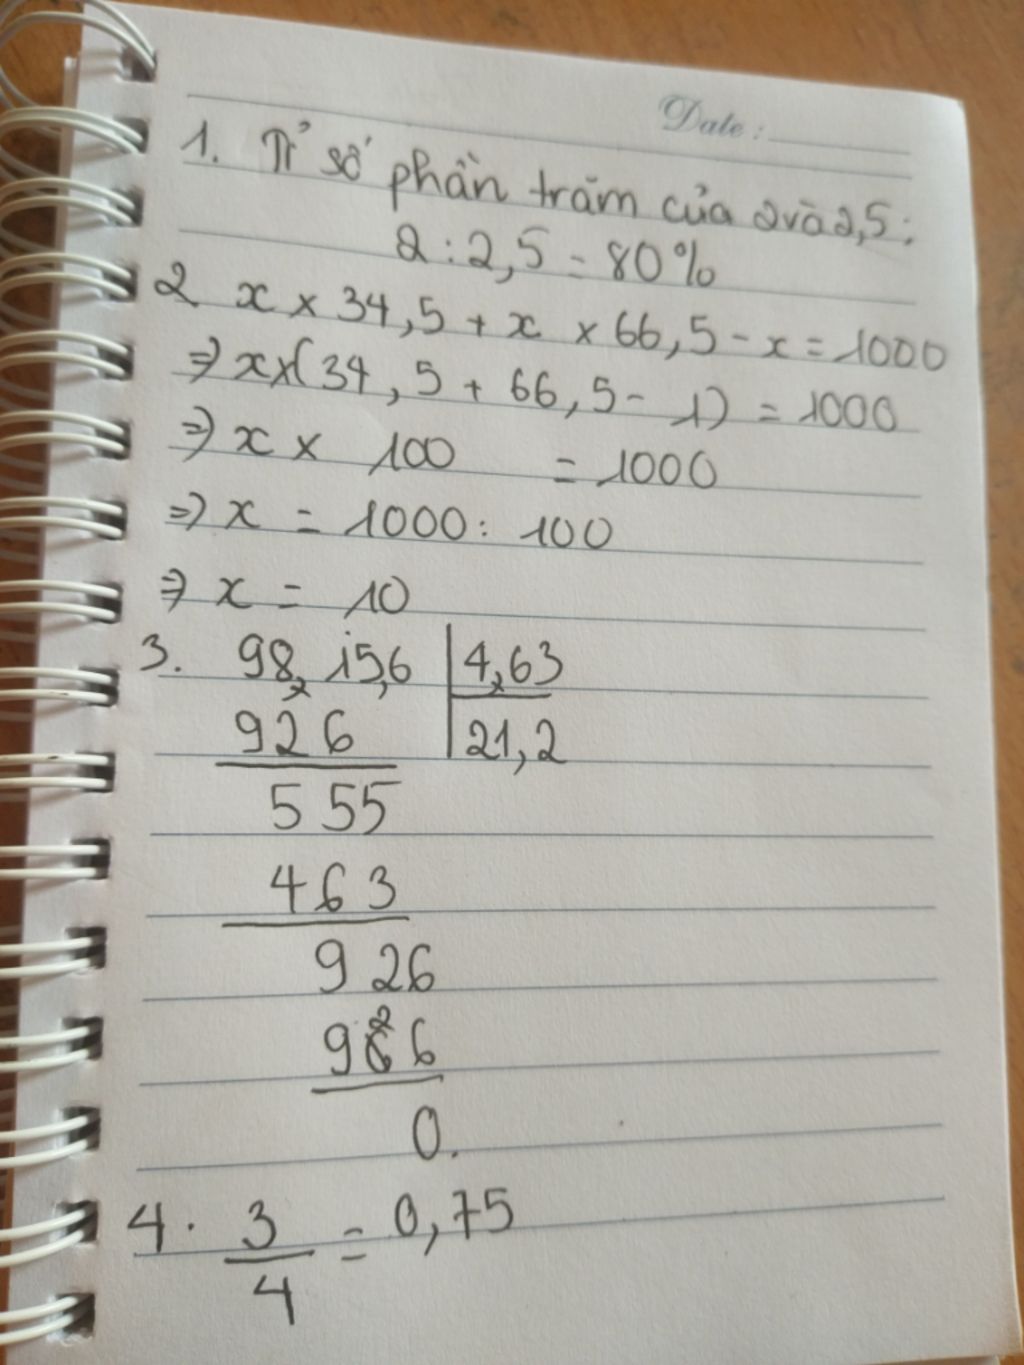 Date:
1. Tỉ số phần trăm của 2 và 2,5:
2 : 2,5 = 80%
2 x × 34,5 + x × 66,5 - x = 1000
=> x × (34,5 + 66,5 - 1) = 1000
=> x × 100 = 1000
=> x = 1000 : 100
=> x = 10
3. 98,15,6 4,63
926 21,2
555
463
926
926
0.
4. 3/4 = 0,75